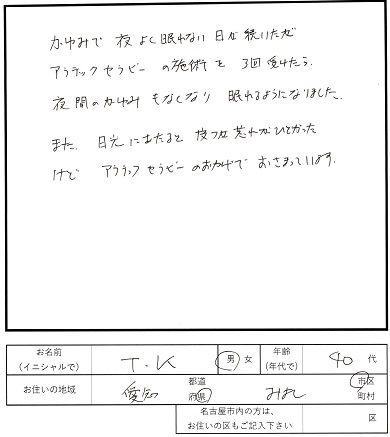 かゆみで 夜 よく眠れない 日が 続いたが
アラテックセラピー の施術を 3回 受けたら、
夜間のかゆみ もなくなり 眠れるようになりました。
また 日光にあたると 皮フの荒れがひどかった
けど アラテックセラピーのおかげで おさまっています。
お名前 (イニシャルで) T.K 男 女 年齢 (年代で) 40 代
お住いの地域 愛知 都道府県 市区町村
名古屋市内の方は、
お住いの区もご記入下さい 区